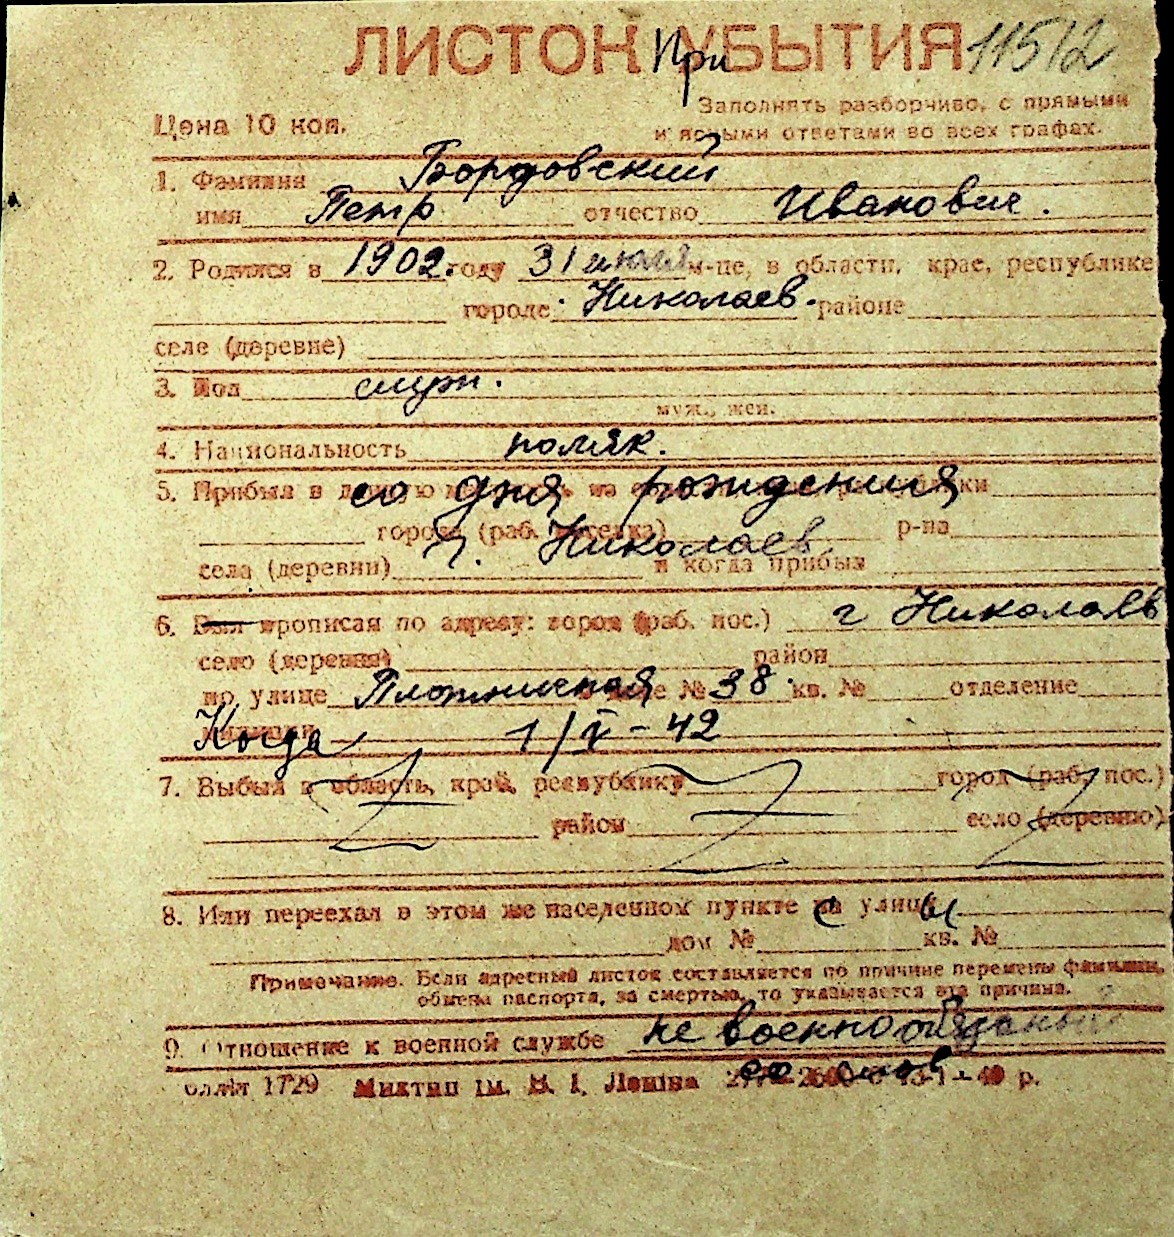 ЛИСТОК При УБЫТИЯ 11512
Заполнять разборчиво, с прямыми
Цена 10 коп.
и ясными ответами во всех графах.
1. Фамилия Бордовский
имя Петр отчество Иванович.
2. Родился в 1902. году 31 июля м-це, в области, крае, республике
городе Николаев. районе
селе (деревне)
3. Пол муж.
муж., жен.
4. Национальность поляк.
5. Прибыл в со дня рождения
города (раб. поселка) р-на
г. Николаев
села (деревни) и когда прибыл
6. Был прописан по адресу: город (раб. пос.) г Николаев
село (деревня) район
по улице Плотничная доме № 38. кв. № отделение
милиции Когда 1/V - 42
7. Выбыл в область, край, республику город (раб. пос.)
район село (деревню)
8. Или переехал в этом же населенном пункте на с улицы
дом № кв. №
Примечание. Если адресный листок составляется по причине перемены фамилии,
обмена паспорта, за смертью, то указывается эта причина.
9. Отношение к военной службе не военнообязаный
1729 Миктип ім. В. І. Леніна 40 р.